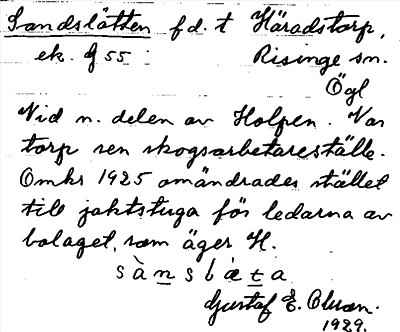 Sandslätten f d. t Häradstorp,
ek. 9 55 Risinge sn.
Ögl
Vid n. delen av Holpen. Var
torp sen skogsarbetareställe.
Omkr 1925 omändrades stället
till jaktstuga för ledarna av
bolaget, som äger H.
Gustaf E.
1929.